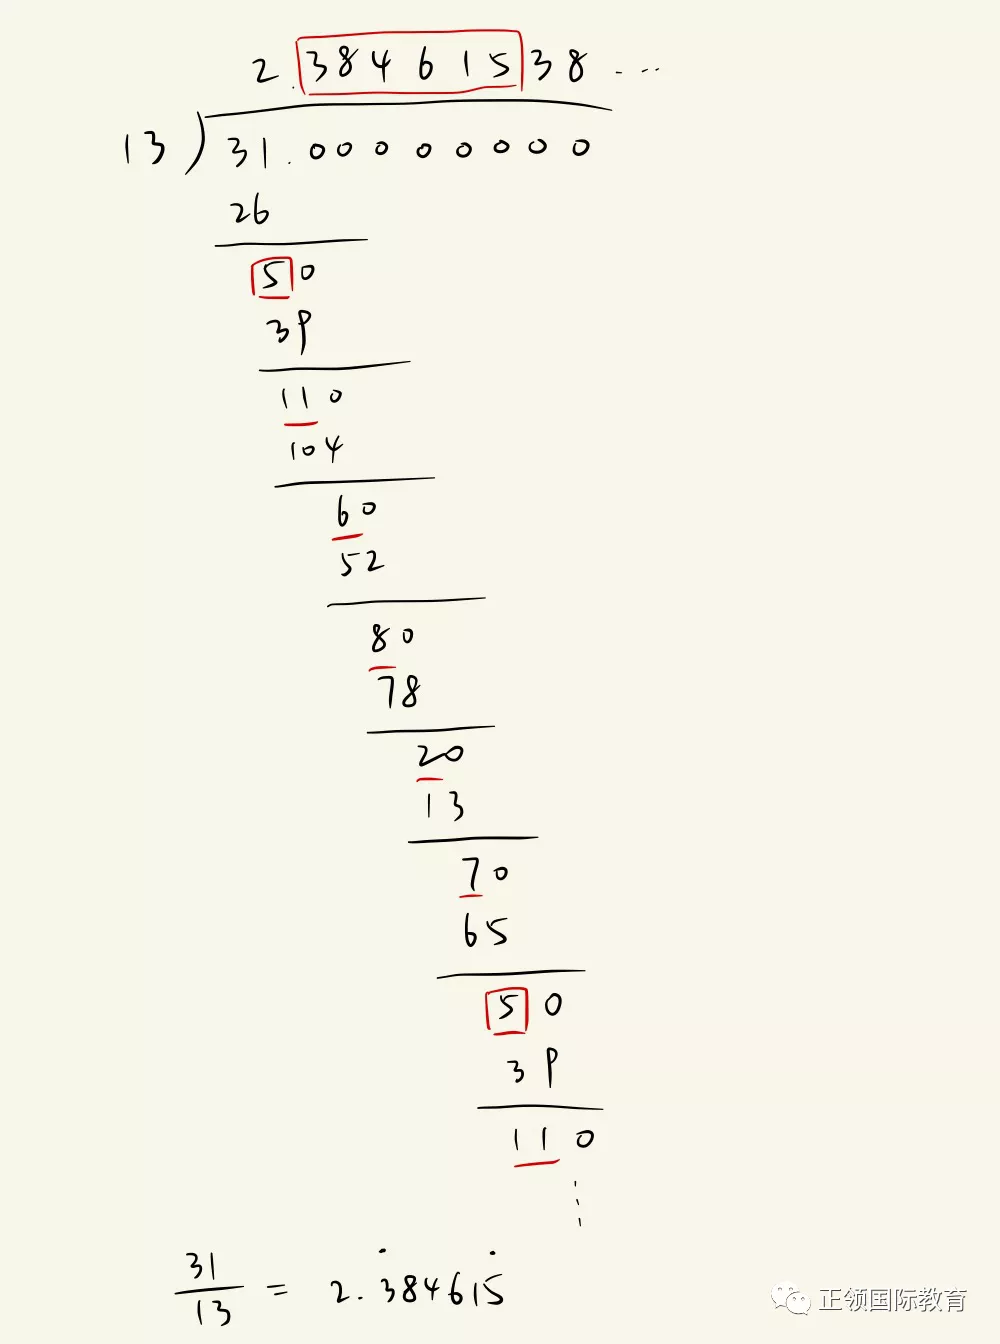 2.38461538 ...
13)31.00000000
26
50
39
110
104
60
52
80
78
20
13
70
65
50
39
110
⋮
31/13 = 2.3̇84615̇
正领国际教育